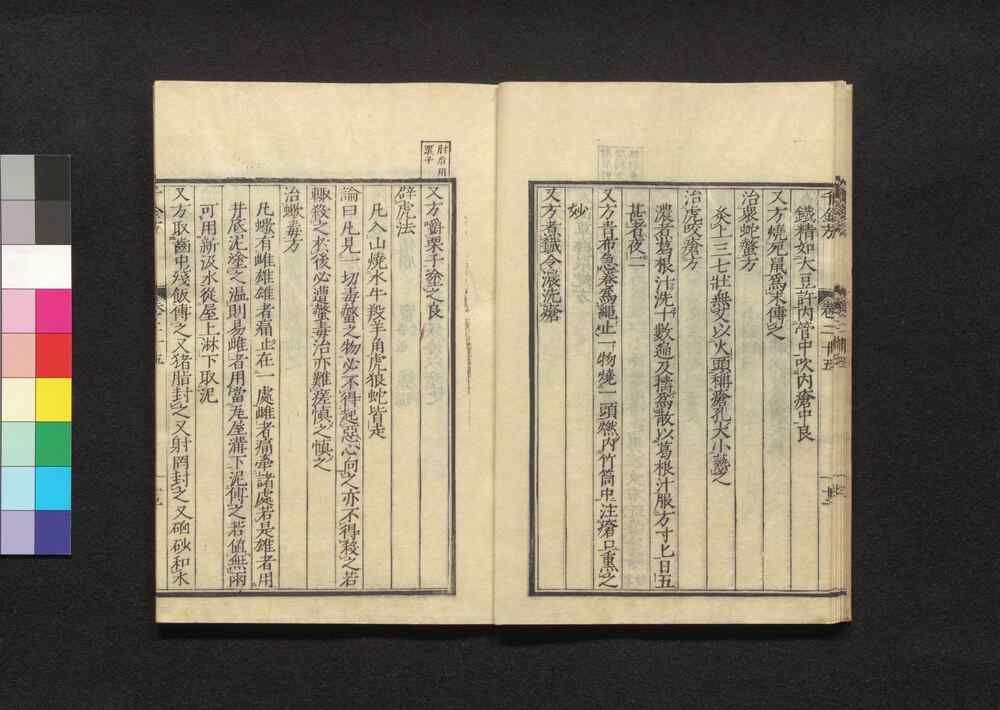 千金方
卷二十五
鐵精如大豆許內管中吹內瘡中良
又方燒死鼠爲末傅之
治衆蛇螫方
灸上三七壯無艾以火頭稱瘡孔大小爇之
治虎咬瘡方
濃煮葛根汁洗十數遍及擣爲散以葛根汁服方寸匕日五
甚者夜二
又方青布急卷爲繩止一物燒一頭燃內竹筒中注瘡口熏之
妙
又方煮鐵令濃洗瘡
肘后用
栗子
又方嚼栗子塗之良
辟虎法
凡入山燒水牛羖羊角虎狼蛇皆走
論曰凡見一切毒螫之物必不得起惡心向之亦不得殺之若
輒殺之於後必遭螫毒治亦難瘥慎之慎之
治蠍毒方
凡蠍有雌雄雄者痛止在一處雌者痛牽諸處若是雄者用
井底泥塗之溫則易雌者用當瓦屋溝下泥傅之若值無雨
可用新汲水從屋上淋下取泥
又方取齒中殘飯傅之又猪脂封之又射罔封之又硇砂和水